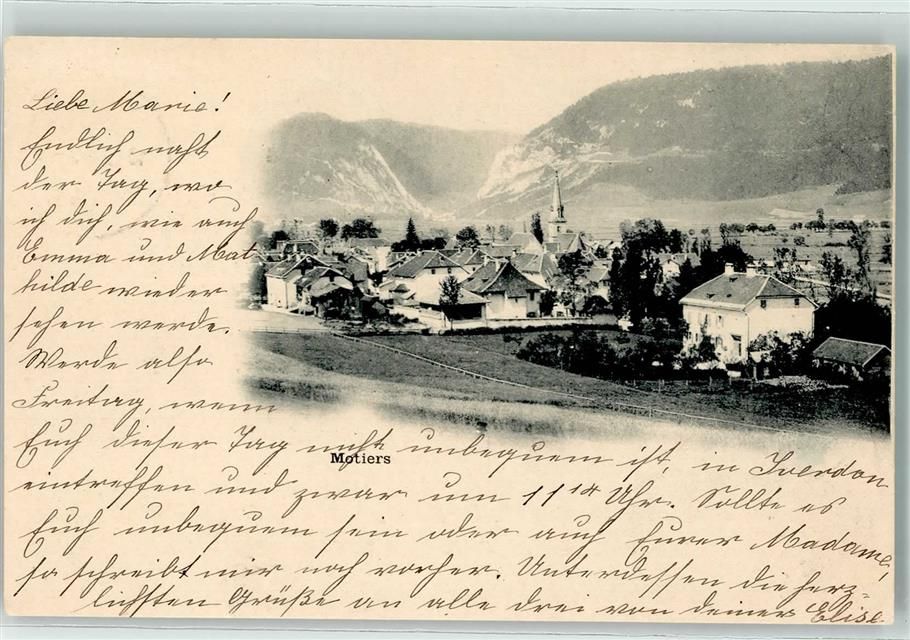 Liebe Marie!
Endlich naht
der Tag, wo
ich dich, wie auch
Emma und Mat
hilde wieder
sehen werde.
Werde also
Freitag, wenn
Euch dieser Tag nicht unbequem ist, in Iverdon
Motiers
eintreffen und zwar um 11 14 Uhr. Sollte es
Euch unbequem sein oder auch Eurer Madame,
so schreibt mir noch vorher. Unterdessen die herz=
lichsten Grüße an alle drei von deiner Elise!